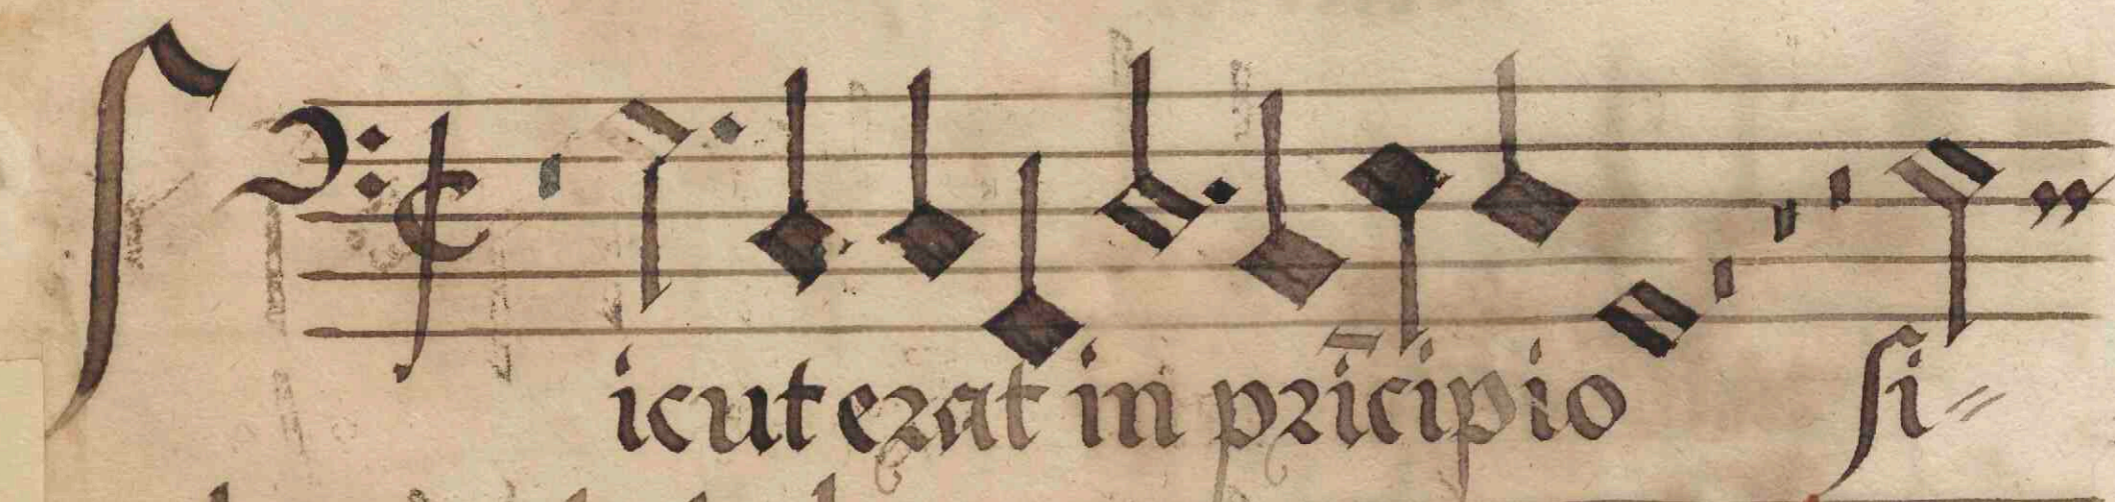 Sicut erat in prĩcipio Si=